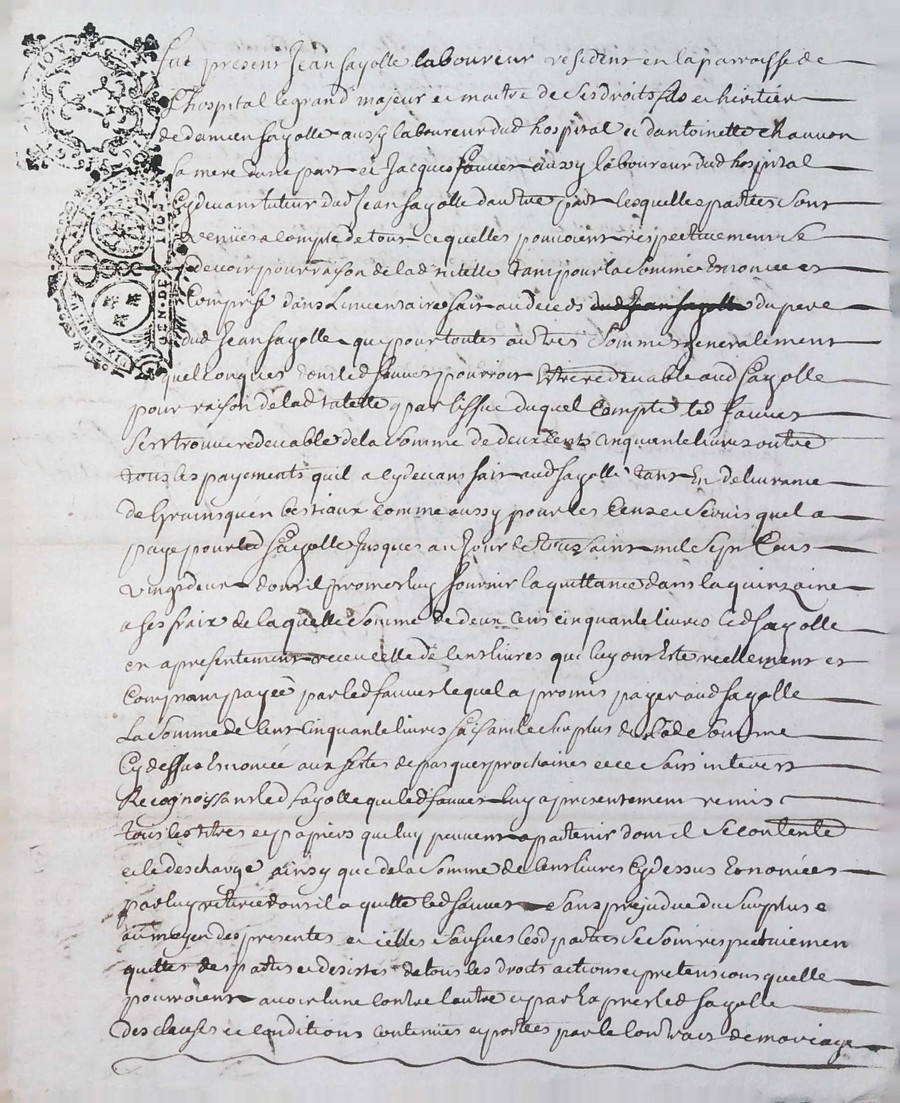 fut present Jean fayolle laboureur residant en la parroisse de
l'hospital le grand majeur et maitre de ses droits fils et heritier
de damien fayolle aussy laboureur dud hospital et d'antoinette chauvon
sa mere dune part et Jacques fauver aussy laboureur dud hospital
Cydevant tuteur dud Jean fayolle dautre part lesquelles parties sont
venües a compte de tous ce quelles pouvoient respectivement se
devoir pour raison de lad tutelle tant pour la somme Enoncée et
Comprise dans L'inventaire fait au deceds dud Jean fayolle du pere
dud Jean fayolle que pour toutes autres sommes generalement
quelconques dont led fauver pourroit Estre redevable aud fayolle
pour raison de lad tutelle par lissue duquel Compte led fauver
sest trouvé redevable de la somme de deux Cents cinquante livres outre
tous les payements quil a Cydevans fait aud fayolle tant En delivrance
de Grains quen bestiaux Comme aussy pour les Cens et servis quel a
payé pour led fayolle Jusques au Jour de Toussaint mil Sept Cens
vingt deux dont il promet luy fournir la quittance dans la quinzaine
a ses frais de la quelle somme de deux Cens cinquante livres led fayolle
en a presentement receu celle de Cens livres qui luy ont Esté reellement et
Comptant payée par led fauver lequel a promis payer aud fayolle
La somme de Cent Cinquante livres faisant le surplus de lade somme
Cy dessus Enoncée aux festes de pasques prochaines et ce sans interest
Recognoissant led fayolle que led fauver luy a presentement remis
tous les titres et papiers que luy peuvent apartenir dont il se contente
et le descharge ainsy que de la somme de Cens livres Cy dessus Enoncées
par luy retirée dont il a quitté led fauver sans prejudice du surplus e
au moyen des presentes et icelles sauves lesd parties se sont respectivemen
quittes des partis et desistés de tous les droits actions et pretensions quelle
pouvoient avoir lune contre lautre et par Exprés led fayolle
des clauses et conditions contenües et portées par le Contract de mariage